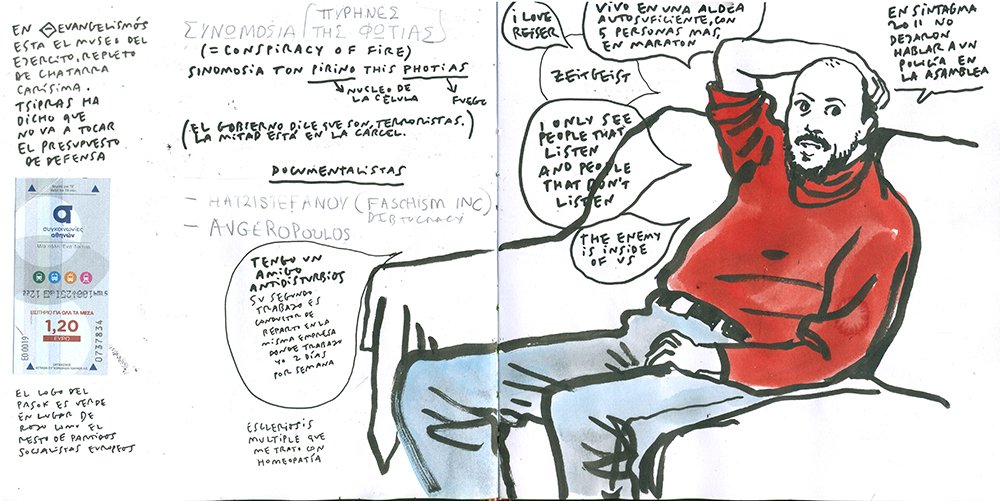 EN EVANGELISMÓS
ESTA EL MUSEO DEL
EJERCITO, REPLETO
DE CHATARRA
CARÍSIMA.
TSIPRAS HA
DICHO QUE
NO VA A TOCAR
EL PRESUPUESTO
DE DEFENSA
συγκοινωνίες
αθηνών
ΕΙΣΙΤΗΡΙΟ ΓΙΑ ΟΛΑ ΤΑ ΜΕΣΑ
1,20
ΕΥΡΩ
EO 0019
0737834
EL LOGO DEL
PASOK ES VERDE
EN LUGAR DE
ROJO COMO EL
RESTO DE PARTIDOS
SOCIALISTAS EUROPEOS
ΠΥΡΗΝΕΣ
ΣΥΝΩΜΟΣΙΑ ΤΗΣ ΦΩΤΙΑΣ
(= CONSPIRACY OF FIRE)
SINOMOSIA TON PIRINO THIS PHOTIAS
NUCLEO DE
LA CÉLULA
FUEGO
(EL GOBIERNO DICE QUE SON, TERRORISTAS.
LA MITAD ESTÁ EN LA CARCEL.)
DOCUMENTALISTAS
- HATZISTEFANOU (FASCHISM INC).
DEBTOCRACY
- AVGEROPOULOS
TENGO UN
AMIGO
ANTIDISTURBIOS
SU SEGUNDO
TRABAJO ES
CONDUCTOR DE
REPARTO EN LA
MISMA EMPRESA
DONDE TRABAJO
YO 2 DÍAS
POR SEMANA
ESCLEROSIS
MULTIPLE QUE
ME TRATO CON
HOMEOPATÍA
I LOVE
REISER
VIVO EN UNA ALDEA
AUTOSUFICIENTE, CON
5 PERSONAS MAS,
EN MARATON
ZEITGEIST
I ONLY SEE
PEOPLE THAT
LISTEN
AND PEOPLE
THAT DON'T
LISTEN
THE ENEMY
IS INSIDE
OF US
EN SINTAGMA
2011 NO
DEJARON
HABLAR A UN
POLICÍA EN
LA ASAMBLEA